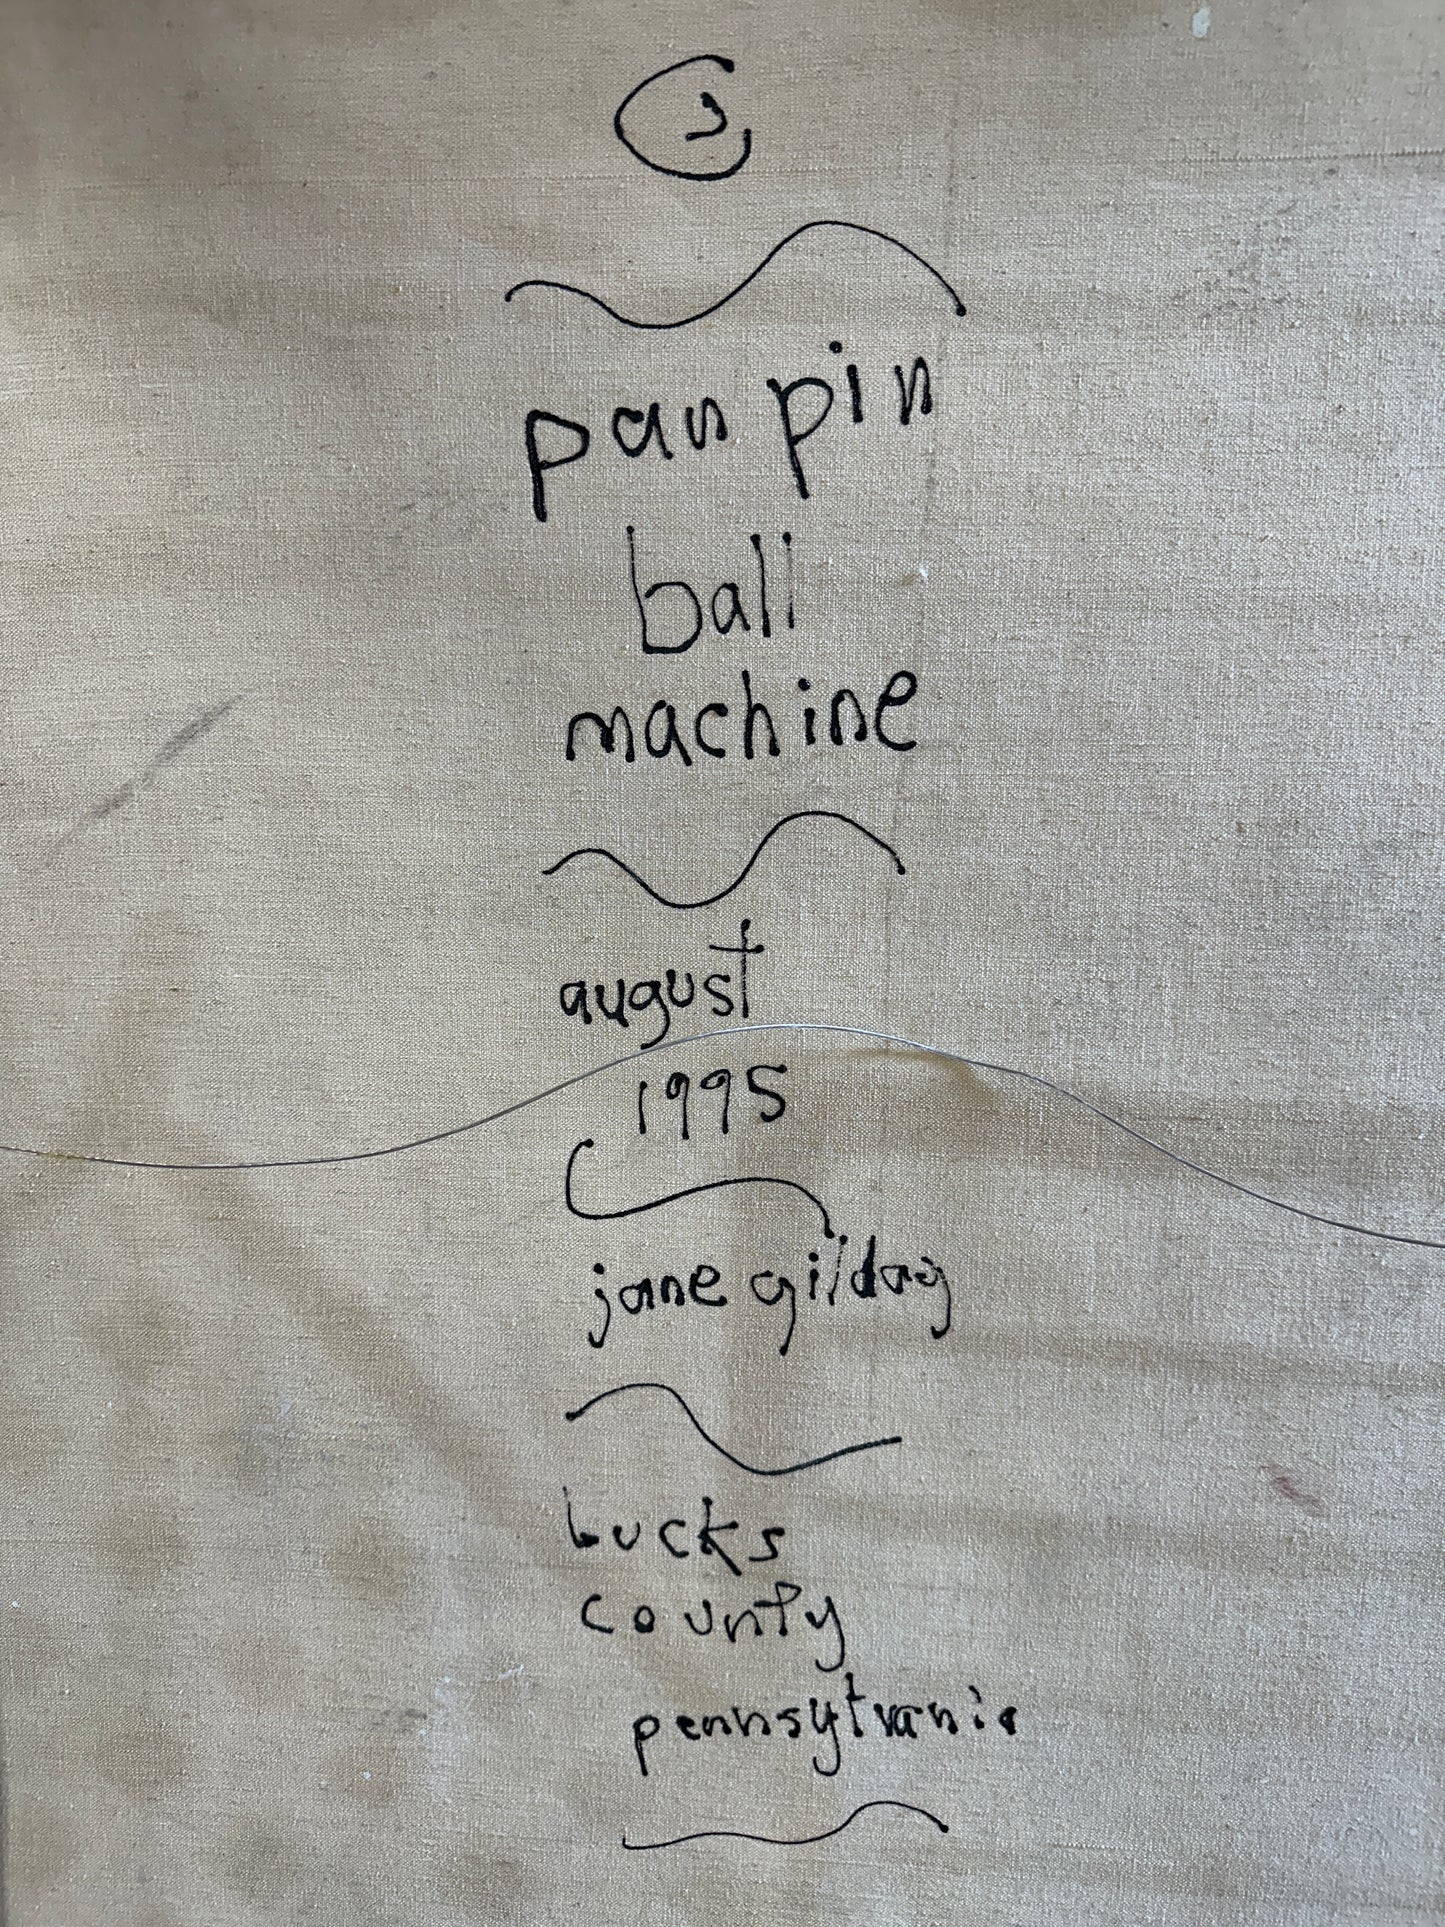 pan pin
ball
machine
august
1995
jane gilday
bucks
county
pennsylvania